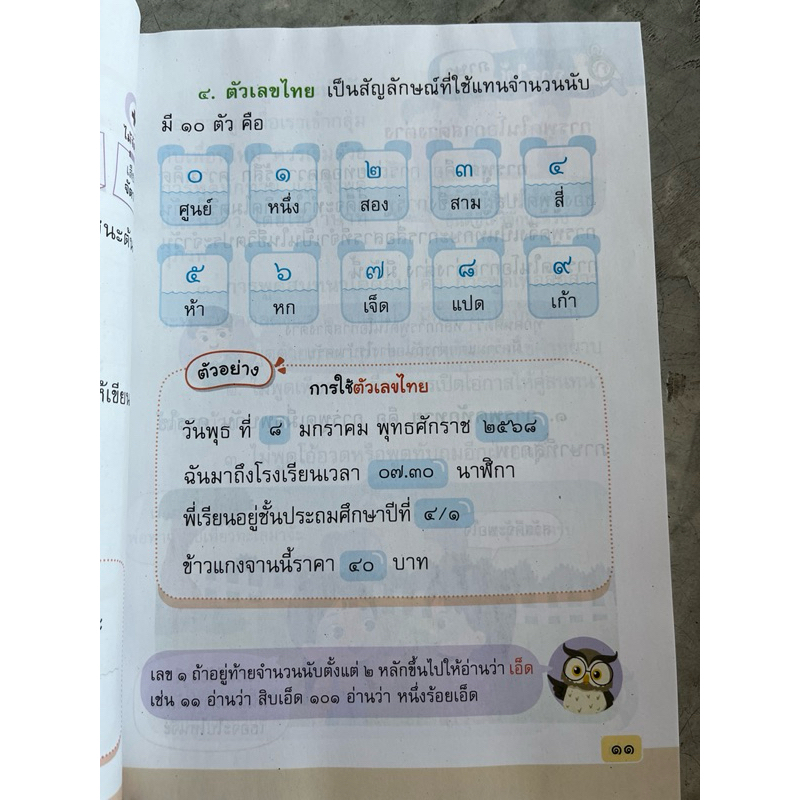 ๔. ตัวเลขไทย เป็นสัญลักษณ์ที่ใช้แทนจำนวนนับ
มี ๑๐ ตัว คือ
๐ ๑ ๒ ๓ ๔
ศูนย์ หนึ่ง สอง สาม สี่
๕ ๖ ๗ ๘ ๙
ห้า หก เจ็ด แปด เก้า
ตัวอย่าง
การใช้ตัวเลขไทย
วันพุธ ที่ ๘ มกราคม พุทธศักราช ๒๕๖๘
ฉันมาถึงโรงเรียนเวลา ๐๗.๓๐ นาฬิกา
พี่เรียนอยู่ชั้นประถมศึกษาปีที่ ๔/๑
ข้าวแกงจานนี้ราคา ๔๐ บาท
เลข ๑ ถ้าอยู่ท้ายจำนวนนับตั้งแต่ ๒ หลักขึ้นไปให้อ่านว่า เอ็ด
เช่น ๑๑ อ่านว่า สิบเอ็ด ๑๐๑ อ่านว่า หนึ่งร้อยเอ็ด
๑๑